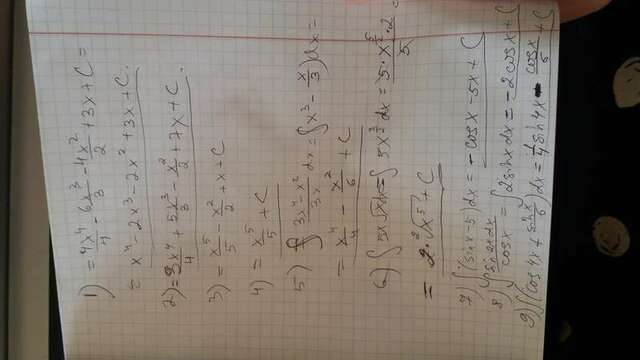 1) = 4x⁴/4 - 6x³/3 - 4x²/2 + 3x + C =
= x⁴ - 2x³ - 2x² + 3x + C.
2) = 3x⁴/4 + 5x³/3 - x²/2 + 7x + C.
3) = x⁵/5 - x²/2 + x + C
4) = x⁵/5 + C
5) ∫ (3x⁴ - x²)/3x dx = ∫ x³ - x/3) dx =
= x⁴/4 - x²/6 + C
6) ∫ 5x√x dx = ∫ 5x^(3/2) dx = 5·x^(5/2)·2/5 =
= 2·²√x⁵ + C
7) ∫ (sin x - 5) dx = - cos x - 5x + C
8) ∫ sin 2x dx/cos x = ∫ 2 sin x dx = - 2 cos x + C
9) ∫ (cos 4x + sin x/6) dx = 1/4 sin 4x - cos x/6 + C